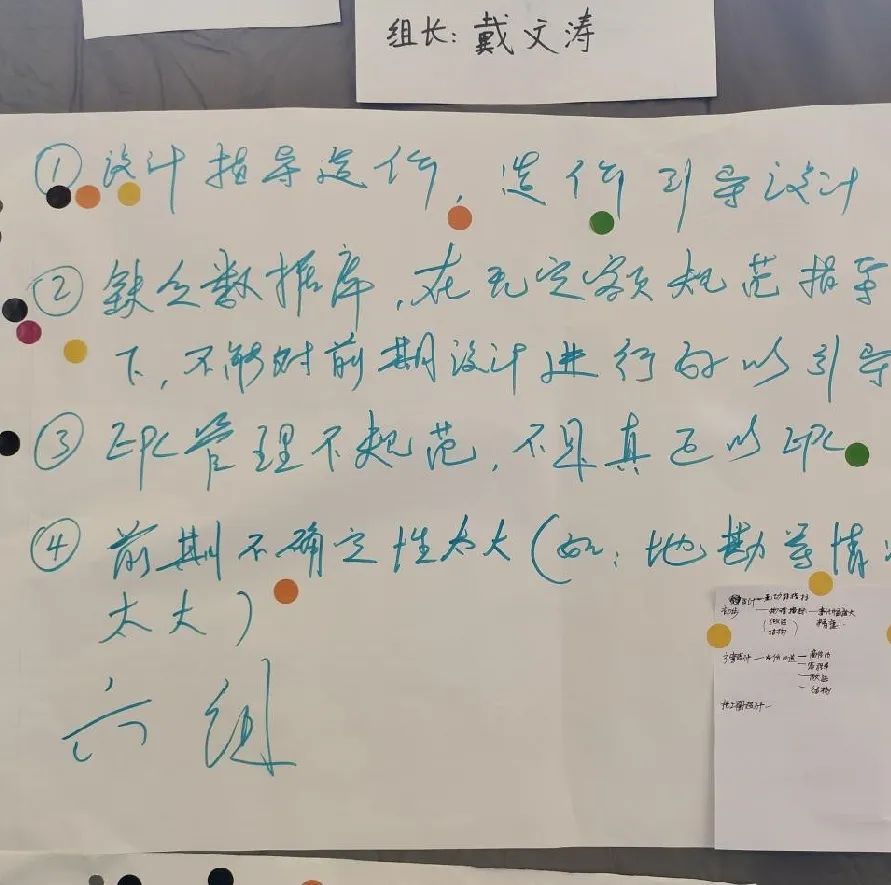 组长：戴文涛
① 设计指导造价，造价引导设计
② 缺乏数据库，在无定额规范指导
下，不能对前期设计进行的以引导
③ EPC管理不规范，不是真正以EPC
④ 前期不确定性太大（如：地勘等情
太大）
六组